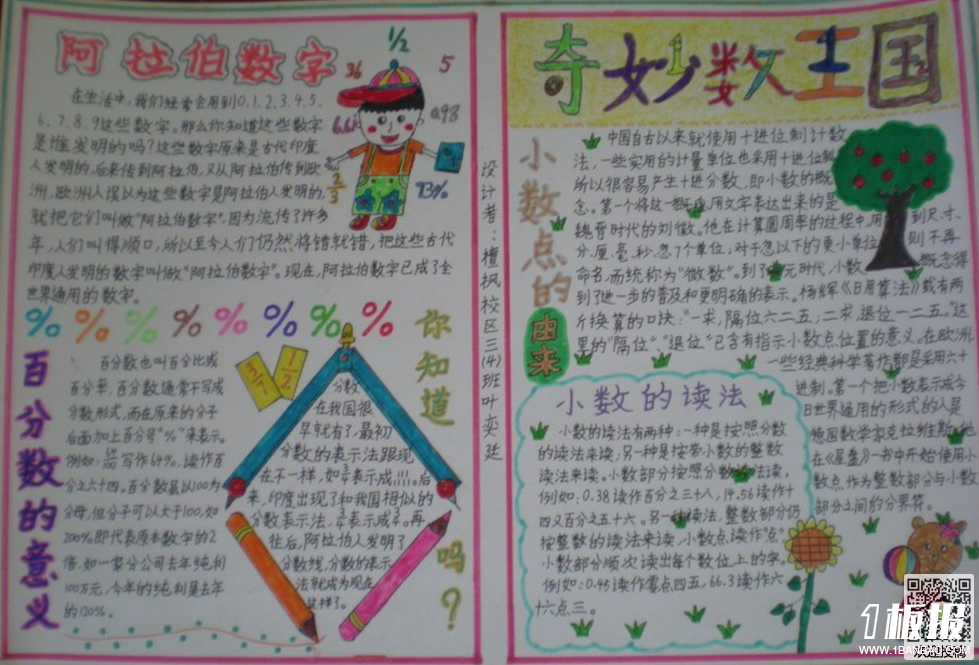 阿拉伯数字
1/2
36
5
6.6
0.98
2/3
93%
在生活中，我们经常会用到0.1.2.3.4.5、
6、7、8、9这些数字。那么你知道这些数字
是谁发明的吗？这些数字原来是古代印度
人发明的，后来传到阿拉伯，又从阿拉伯传到欧
洲，欧洲人误以为这些数字是阿拉伯人发明的，
就把它们叫做“阿拉伯数字”。因为流传了许多
年，人们叫得顺口，所以至今人们仍然将错就错，把这些古代
印度人发明的数字叫做“阿拉伯数字”。现在，阿拉伯数字已成了全
世界通用的数字。
% % % % % % % %
百分数的意义
百分数也叫百分比或
百分率，百分数通常不写成
分数形式，而在原来的分子
后面加上百分号“%”来表示。
例如：64/100写作64%，读作百
分之六十四。百分数虽以100为
分母，但分子可以大于100，如
200%即代表原本数字的2
倍。如一家公司去年纯利
100万元，今年的纯利是去年
的120%。
你知道吗？
1/2
分数
在我国很
早就有了，最初
分数的表示法跟现
在不一样，如3/4表示成。后
来，印度出现了和我国相似的
分数表示法，3/4表示成3/4。再
往后，阿拉伯人发明了
分数线，分数的表示
法就成为现在
这样了。
设计者：檀枫校区三(4)班叶奕廷
奇妙数学王国
小数点的由来
中国自古以来就使用十进位制计数
法，一些实用的计量单位也采用十进位制
所以很容易产生十进分数，即小数的概
念。第一个将这一概念用文字表达出来的是
魏晋时代的刘徽。他在计算圆周率的过程中，用到尺、寸、
分、厘、毫、秒、忽7个单位；对于忽以下的更小单位则不再
命名，而统称为“微数”。到了元时代，小数概念得
到了进一步的普及和更明确的表示。杨辉《日用算法》载有两
斤换算的口诀：“一求，隔位六二五；二求，退位一二五。”这
里的“隔位”、“退位”已含有指示小数点位置的意义。在欧洲
一些经典科学著作都是采用六十
进制，第一个把小数表示成今
日世界通用的形式的人是
德国数学家克拉维斯，他
在《星盘》一书中开始使用小
数点，作为整数部分与小数
部分之间的分界符。
小数的读法
小数的读法有两种：一种是按照分数
的读法来读；另一种是按带小数的整数
读法来读，小数部分按照分数读法读，
例如：0.38读作百分之三十八，14.56读作十
四又百分之五十六。另一种读法，整数部分仍
按整数的读法来读，小数点读作“点”
小数部分顺次读出每个数位上的字。
例如：0.45读作零点四五，66.3读作六
十六点三。
1板报
WWW.1BANBAO.COM
欢迎投稿